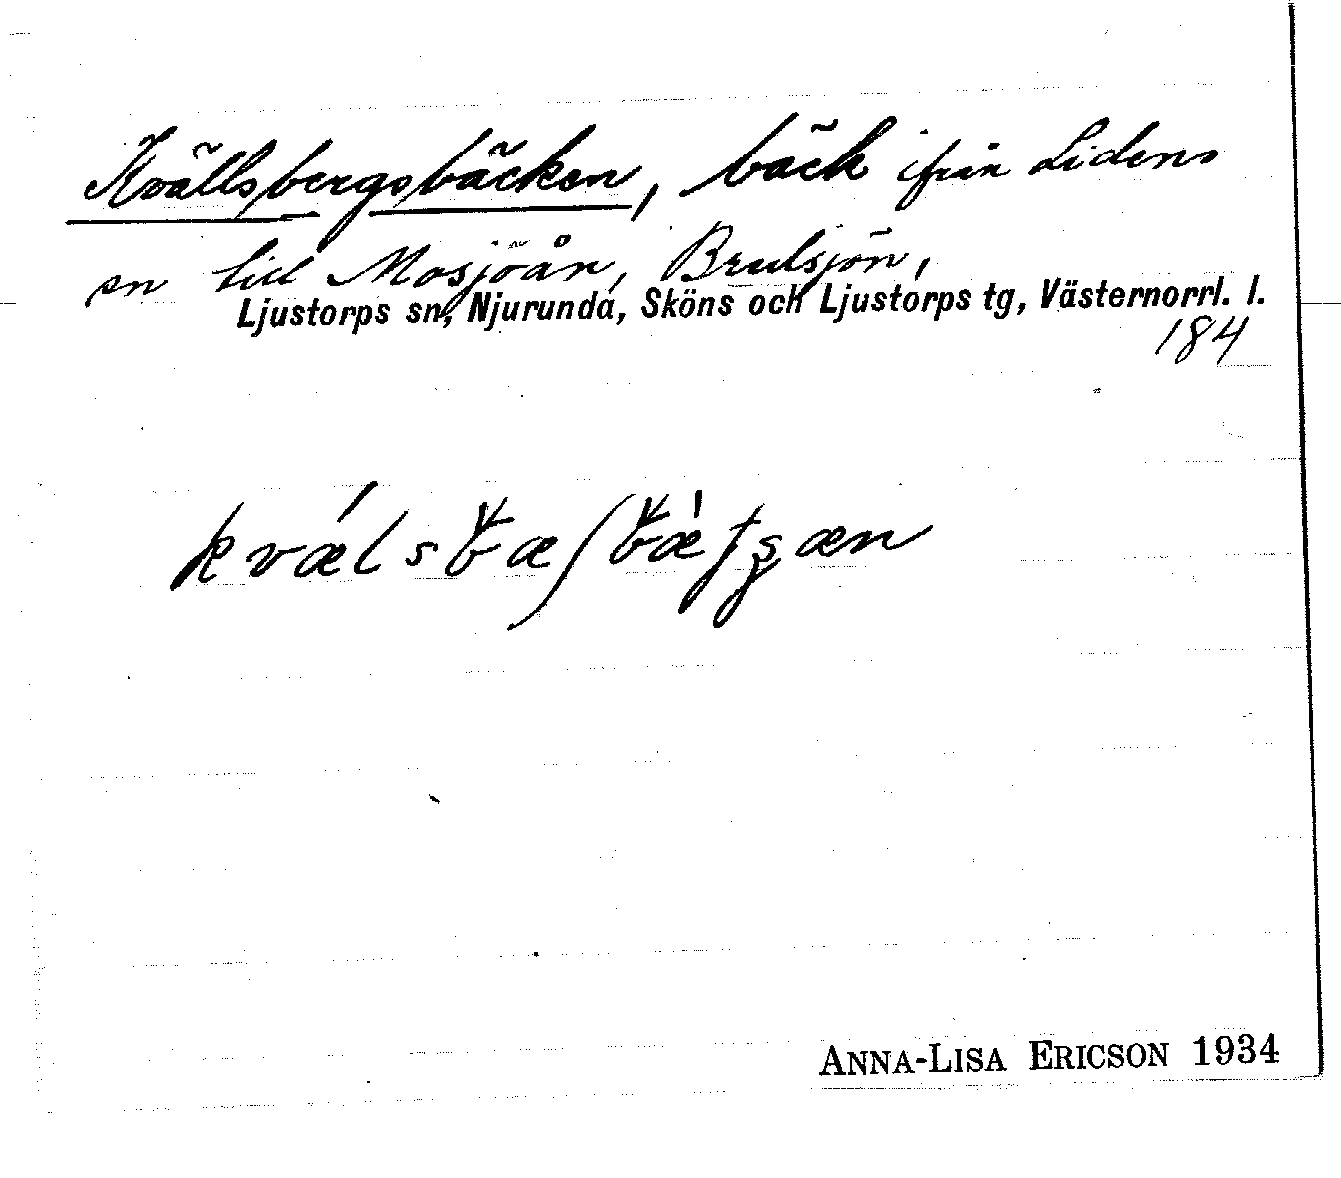 Kvällsbergsbäcken, bäck ifrån Lidens
sn till Mosjöån, Brulsjön,
Ljustorps sn, Njurunda, Sköns och Ljustorps tg, Västernorrl. l.
184
ANNA-LISA ERICSON 1934